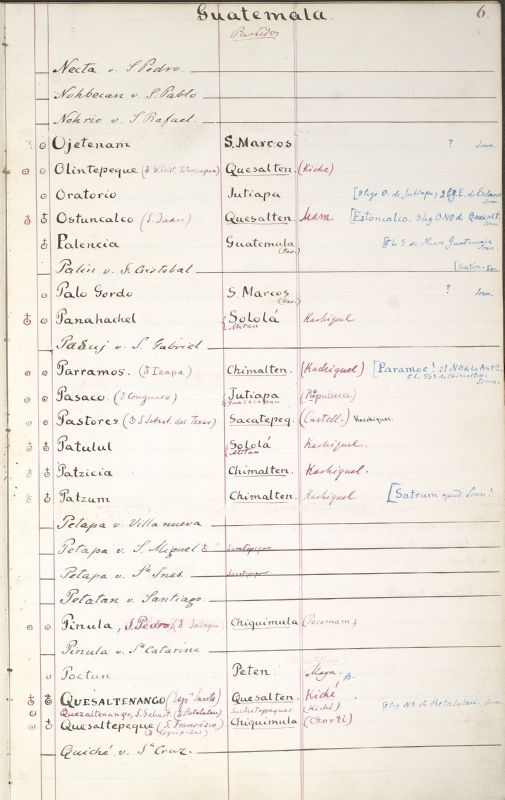 Guatemala. 6.
Partidos
Necta v. S. Pedro.
Nohbecan v. S. Pablo
Nohrio v. S. Rafael.
Ojetenam S. Marcos ?
Olintepeque (♁ S. Crist. Totonicapan) Quesalten. (Kiché)
Oratorio Jutiapa
Ostuncalco (S. Juan) Quesalten. Mam. [Estoncalco.
Palencia Guatemala
Palin v. S. Cristobal
Palo Gordo S. Marcos ?
Panahachel Sololá Kachiquel
Atitan
Pasuj v. S. Gabriel
Parramos. (♁ Itzapa) Chimalten. (Kachiquel) [Paramoc!
Pasaco. (♁ Conguaco) Jutiapa (Pipuluca)
Guazacapan
Pastores Sacatepeq. (Castell.)
Patulul Sololá Kachiquel.
Atitan
Patzicia Chimalten. Kachiquel.
Patzum Chimalten. Kachiquel [Satrum
Petapa v. Villanueva
Petapa v. S. Miguel ♁ Sacatepeques
Petapa v. Sta Ines Sacatepeques
Petatan v. Santiago.
Pinula, S. Pedro (♁ Jalapa) Chiquimula (Pocomam)
Pinula v. Sta Catarina
Poctun Peten. Maya.
QUESALTENANGO Quesalten. Kiché
Quezaltenango, S. Sebast. (♁ Retaluleu) Suchitepeques (Kiché)
Quesaltepeque (S. Francisco) Chiquimula (Chorti)
(♁ Esquipulas)
Quiché, v. Sta Cruz.